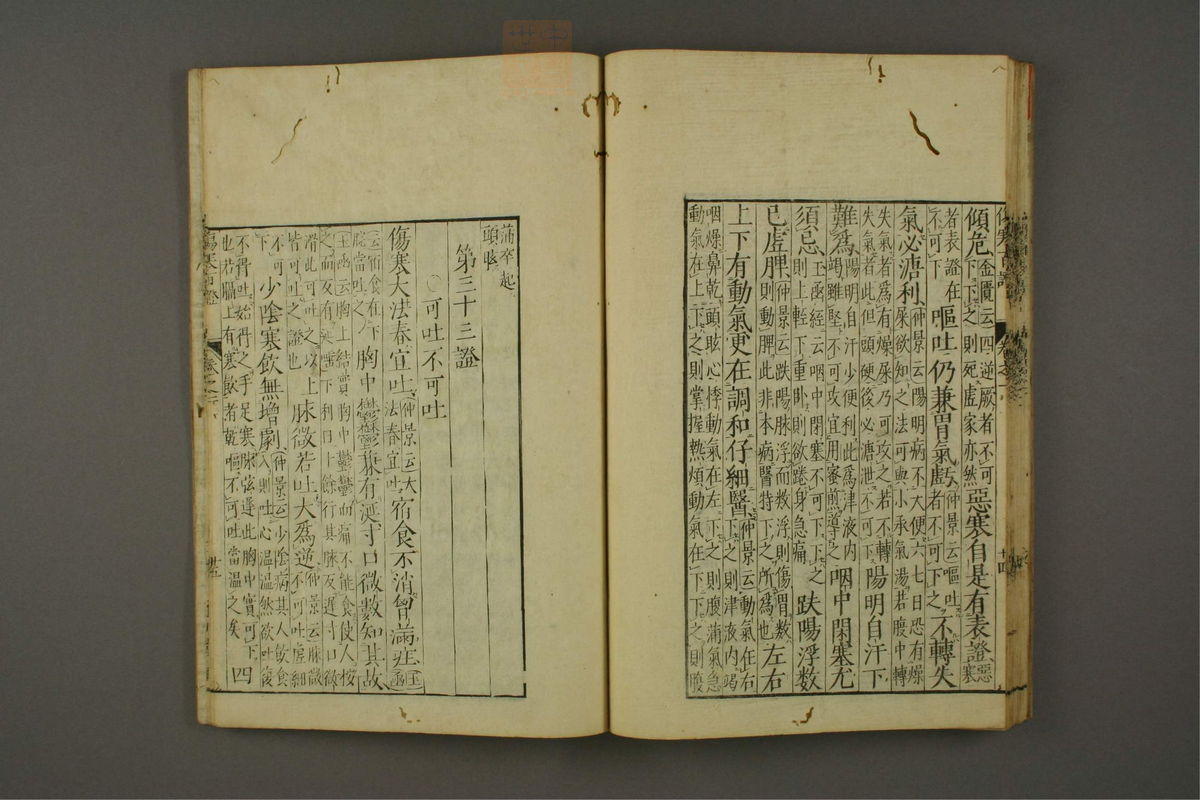 傾危金匱云四逆厥者不可下下之則死虛家亦然惡寒自是有表證惡寒
者表證在不可下嘔吐仍兼胃氣虧仲景云嘔吐者不可下之不轉失
氣必溏利仲景云陽明病不大便六七日恐有燥屎欲知之法可與小承氣湯若腹中轉
失氣者爲有燥屎乃可攻之若不轉失氣者此但頭硬後必溏泄不可下陽明自汗下
難爲陽明自汗少便利此爲津液内竭雖堅不可攻宜用蜜煎導之咽中閉塞尤
須忌玉函經云咽中閉塞不可下下之則上輕下重卧則欲踡身急痛趺陽浮数
已虗脾仲景云趺陽脉浮而数浮則傷胃数則動脾此非本病醫特下之所爲也左右
上下有動氣更在調和仔細醫仲景云動氣在右下之則津液内竭
咽燥鼻乾頭眩心悸動氣在左下之則腹滿氣急
動氣在上下之則掌握熱煩動氣在下下之則腹
滿卒起頭眩
第三十三證
可吐不可吐
傷寒大法春宜吐仲景云大法春宜吐宿食不消曾滿
云宿食在下脘當吐之胸中鬱鬱兼有涎寸口微數知其故
玉函云胸上結實胸中鬱鬱而痛不能食使人按之而反有涎唾下利日十餘行其脉反遲寸口微
滑此可吐之以上皆可吐之證也脉微若吐大爲逆仲景云脉微不可吐虛細
不可下少陰寒飲無增劇仲景云少陰病其人飲食入則吐心温温然欲吐復
不得吐始得之手足寒脉弦遲此胸中實不可下
也若膈上有寒飲者乾嘔不可吐當温之矣四